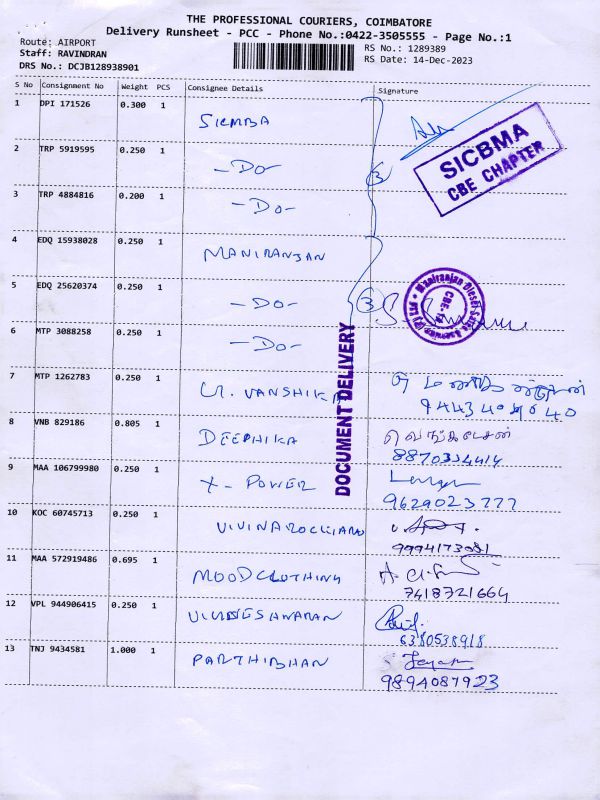 THE PROFESSIONAL COURIERS, COIMBATORE
Delivery Runsheet - PCC - Phone No.:0422-3505555 - Page No.:1
Route: AIRPORT
Staff: RAVINDRAN
DRS No.: DCJB128938901
RS No.: 1289389
RS Date: 14-Dec-2023
S No Consignment No Weight PCS Consignee Details Signature
1 DPI 171526 0.300 1 SICMBA
SICBMA
CBE CHAPTER
2 TRP 5919595 0.250 1 -DO- 3
3 TRP 4884816 0.200 1 -DO-
4 EDQ 15938028 0.250 1 MANIRANJAN
5 EDQ 25620374 0.250 1 -DO- 3
Maniranjan Diesel Sales
6 MTP 3088258 0.250 1 -DO-
DOCUMENT DELIVERY
7 MTP 1262783 0.250 1 VANSHIKA
8 VNB 829186 0.805 1 DEEPHIKA வெங்கடேசன்
8870334414
9 MAA 106799980 0.250 1 X-POWER
9629023777
10 KOC 60745713 0.250 1
9994173081
11 MAA 572919486 0.695 1 MOODCLOTHING
7418721664
12 VPL 944906415 0.250 1
6380538918
13 TNJ 9434581 1.000 1 PARTHIBHAN
9894087923